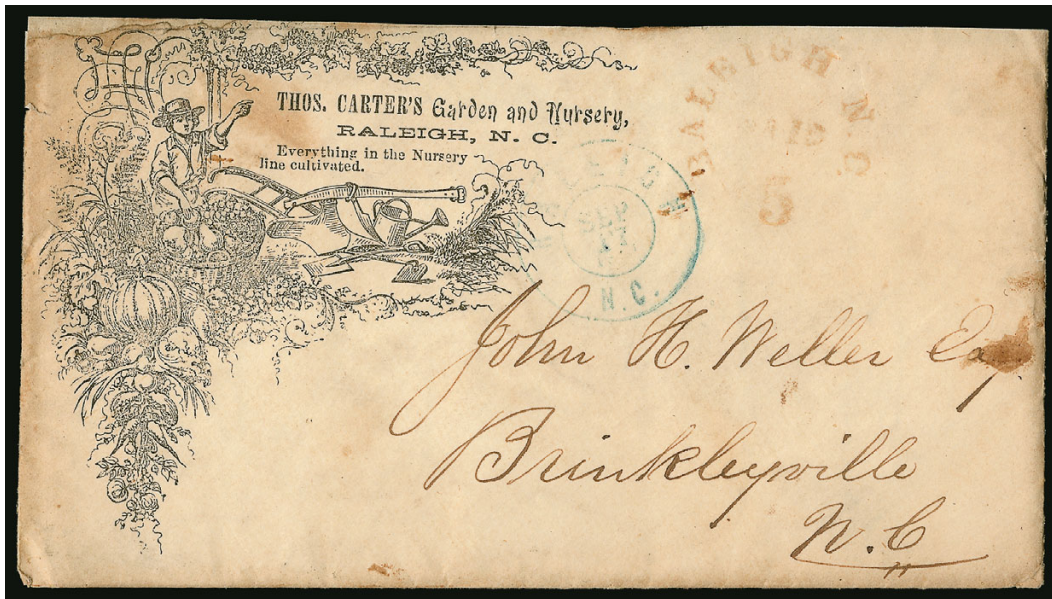 THOS. CARTER'S Garden and Nursery,
RALEIGH, N. C.
Everything in the Nursery
line cultivated.
RALEIGH N.C.
5
SEP
N.C.
John H. Weller Esq
Brinkleyville
N.C